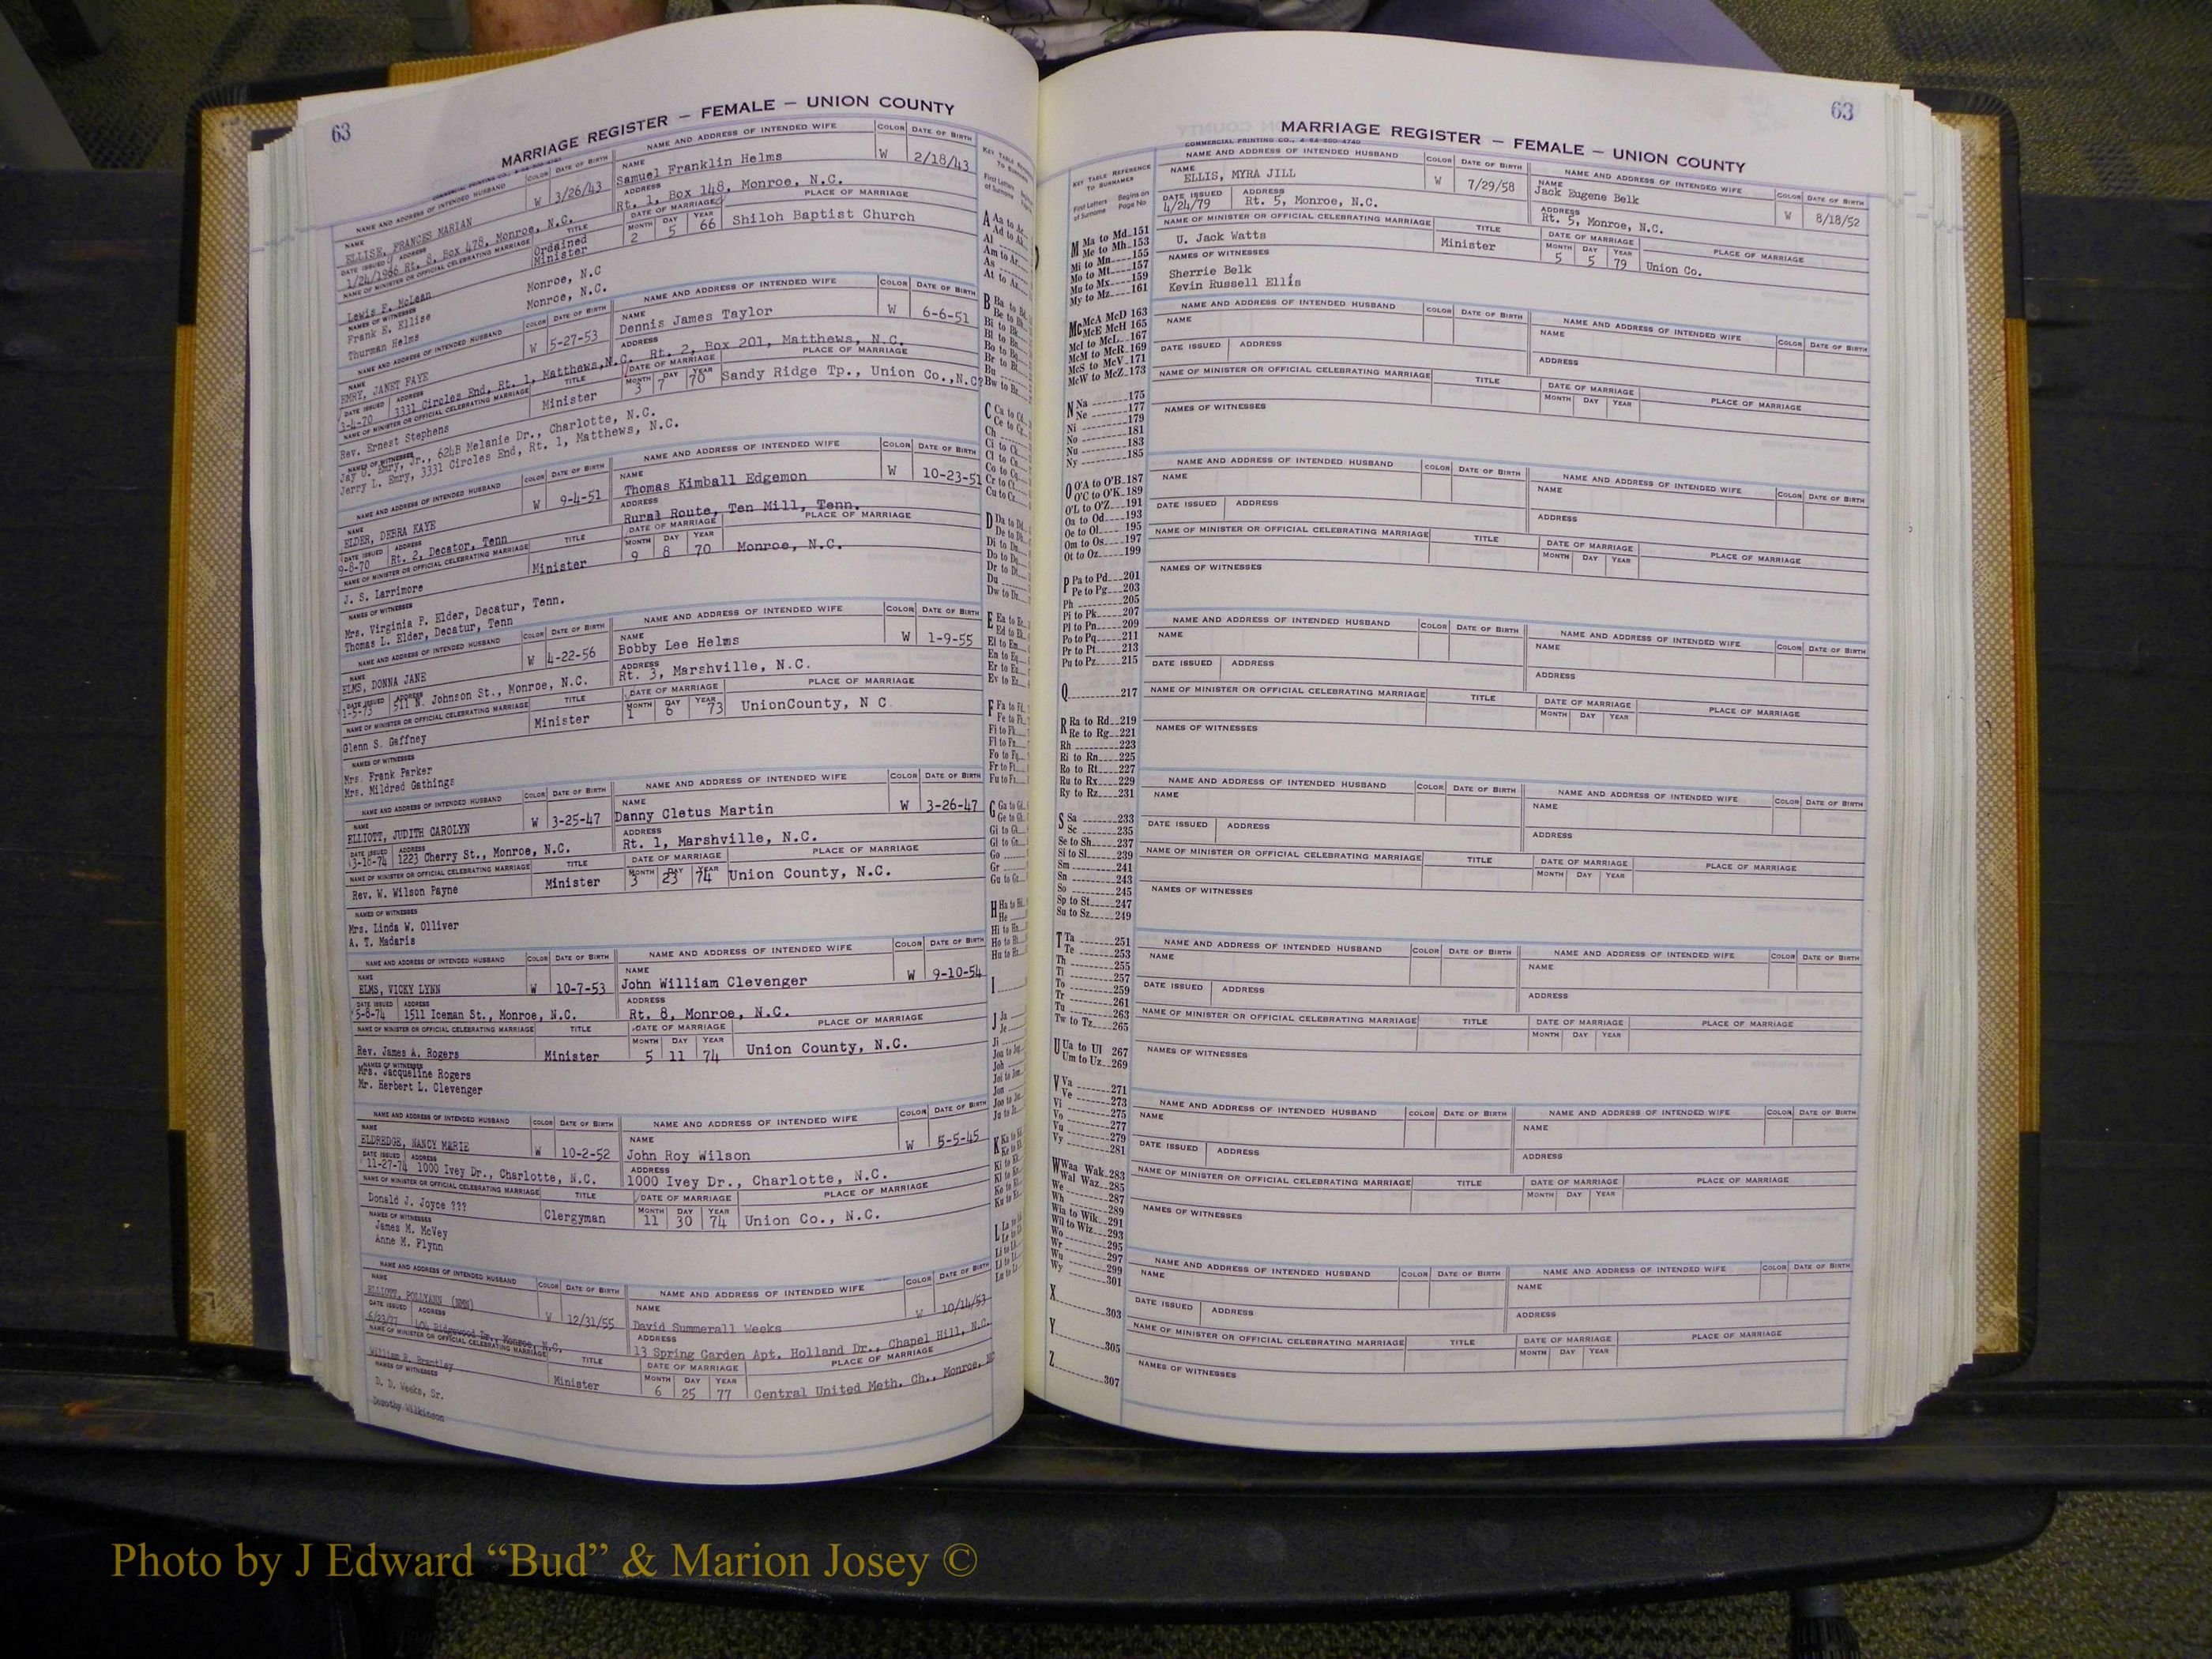 63
MARRIAGE REGISTER — FEMALE — UNION COUNTY
NAME AND ADDRESS OF INTENDED HUSBAND COLOR DATE OF BIRTH NAME AND ADDRESS OF INTENDED WIFE COLOR DATE OF BIRTH
NAME ELLISE, FRANCES MARIAN W 3/26/43 NAME Samuel Franklin Helms W 2/18/43
DATE ISSUED ADDRESS 1/24/1966 Rt. 8, Box 478, Monroe, N.C. ADDRESS Rt. 1, Box 148, Monroe, N.C.
NAME OF MINISTER OR OFFICIAL CELEBRATING MARRIAGE TITLE DATE OF MARRIAGE PLACE OF MARRIAGE
Lewis F. McLean Ordained Minister MONTH 2 DAY 5 YEAR 66 Shiloh Baptist Church
NAMES OF WITNESSES
Frank E. Ellise Monroe, N.C
Thurman Helms Monroe, N.C.
NAME AND ADDRESS OF INTENDED HUSBAND COLOR DATE OF BIRTH NAME AND ADDRESS OF INTENDED WIFE COLOR DATE OF BIRTH
NAME EMRY, JANET FAYE W 5-27-53 NAME Dennis James Taylor W 6-6-51
DATE ISSUED ADDRESS 3-4-70 3331 Circles End, Rt. 1, Matthews,N.C. ADDRESS Rt. 2, Box 201, Matthews, N.C.
NAME OF MINISTER OR OFFICIAL CELEBRATING MARRIAGE TITLE DATE OF MARRIAGE PLACE OF MARRIAGE
Rev. Ernest Stephens Minister MONTH 3 DAY 7 YEAR 70 Sandy Ridge Tp., Union Co.,N.C?
NAMES OF WITNESSES
Jay U. Emry, Jr., 624B Melanie Dr., Charlotte, N.C.
Jerry L. Emry, 3331 Circles End, Rt. 1, Matthews, N.C.
NAME AND ADDRESS OF INTENDED HUSBAND COLOR DATE OF BIRTH NAME AND ADDRESS OF INTENDED WIFE COLOR DATE OF BIRTH
NAME ELDER, DEBRA KAYE W 9-4-51 NAME Thomas Kimball Edgemon W 10-23-51
DATE ISSUED ADDRESS 9-8-70 Rt. 2, Decator, Tenn ADDRESS Rural Route, Ten Mill, Tenn.
NAME OF MINISTER OR OFFICIAL CELEBRATING MARRIAGE TITLE DATE OF MARRIAGE PLACE OF MARRIAGE
J. S. Larrimore Minister MONTH 9 DAY 8 YEAR 70 Monroe, N.C.
NAMES OF WITNESSES
Mrs. Virginia P. Elder, Decatur, Tenn.
Thomas L. Elder, Decatur, Tenn
NAME AND ADDRESS OF INTENDED HUSBAND COLOR DATE OF BIRTH NAME AND ADDRESS OF INTENDED WIFE COLOR DATE OF BIRTH
NAME ELMS, DONNA JANE W 4-22-56 NAME Bobby Lee Helms W 1-9-55
DATE ISSUED ADDRESS 1-5-73 511 N. Johnson St., Monroe, N.C. ADDRESS Rt. 3, Marshville, N.C.
NAME OF MINISTER OR OFFICIAL CELEBRATING MARRIAGE TITLE DATE OF MARRIAGE PLACE OF MARRIAGE
Glenn S. Gaffney Minister MONTH 1 DAY 6 YEAR 73 UnionCounty, N C
NAMES OF WITNESSES
Mrs. Frank Parker
Mrs. Mildred Gathings
NAME AND ADDRESS OF INTENDED HUSBAND COLOR DATE OF BIRTH NAME AND ADDRESS OF INTENDED WIFE COLOR DATE OF BIRTH
NAME ELLIOTT, JUDITH CAROLYN W 3-25-47 NAME Danny Cletus Martin W 3-26-47
DATE ISSUED ADDRESS 3-16-74 1223 Cherry St., Monroe, N.C. ADDRESS Rt. 1, Marshville, N.C.
NAME OF MINISTER OR OFFICIAL CELEBRATING MARRIAGE TITLE DATE OF MARRIAGE PLACE OF MARRIAGE
Rev. W. Wilson Payne Minister MONTH 3 DAY 23 YEAR 74 Union County, N.C.
NAMES OF WITNESSES
Mrs. Linda W. Olliver
A. T. Madaris
NAME AND ADDRESS OF INTENDED HUSBAND COLOR DATE OF BIRTH NAME AND ADDRESS OF INTENDED WIFE COLOR DATE OF BIRTH
NAME ELMS, VICKY LYNN W 10-7-53 NAME John William Clevenger W 9-10-54
DATE ISSUED ADDRESS 5-8-74 1511 Iceman St., Monroe, N.C. ADDRESS Rt. 8, Monroe, N.C.
NAME OF MINISTER OR OFFICIAL CELEBRATING MARRIAGE TITLE DATE OF MARRIAGE PLACE OF MARRIAGE
Rev. James A. Rogers Minister MONTH 5 DAY 11 YEAR 74 Union County, N.C.
NAMES OF WITNESSES
Mrs. Jacqueline Rogers
Mr. Herbert L. Clevenger
NAME AND ADDRESS OF INTENDED HUSBAND COLOR DATE OF BIRTH NAME AND ADDRESS OF INTENDED WIFE COLOR DATE OF BIRTH
NAME ELDREDGE, NANCY MARIE W 10-2-52 NAME John Roy Wilson W 5-5-45
DATE ISSUED ADDRESS 11-27-74 1000 Ivey Dr., Charlotte, N.C. ADDRESS 1000 Ivey Dr., Charlotte, N.C.
NAME OF MINISTER OR OFFICIAL CELEBRATING MARRIAGE TITLE DATE OF MARRIAGE PLACE OF MARRIAGE
Donald J. Joyce ??? Clergyman MONTH 11 DAY 30 YEAR 74 Union Co., N.C.
NAMES OF WITNESSES
James M. McVey
Anne M. Flynn
NAME AND ADDRESS OF INTENDED HUSBAND COLOR DATE OF BIRTH NAME AND ADDRESS OF INTENDED WIFE COLOR DATE OF BIRTH
NAME ELLIOTT, POLLYANN (NMN) W 12/31/55 NAME David Summerall Weeks W 10/14/53
DATE ISSUED ADDRESS 6/23/77 404 Ridgewood Dr., Monroe, N.C. ADDRESS 13 Spring Garden Apt. Holland Dr., Chapel Hill, N.C.
NAME OF MINISTER OR OFFICIAL CELEBRATING MARRIAGE TITLE DATE OF MARRIAGE PLACE OF MARRIAGE
William S. Brantley Minister MONTH 6 DAY 25 YEAR 77 Central United Meth. Ch., Monroe, NC
NAMES OF WITNESSES
D. D. Weeks, Sr.
Dorothy Wilkinson
63
MARRIAGE REGISTER — FEMALE — UNION COUNTY
COMMERCIAL PRINTING CO.
KEY TABLE REFERENCE
TO SURNAMES
First Letters of Surname Begins on Page No.
M Ma to Md 151
Me to Mh 153
Mi to Mn 155
Mo to Mt 157
Mu to Mx 159
My to Mz 161
Mc McA McD 163
McE McH 165
McI to McL 167
McM to McR 169
McS to McV 171
McW to McZ 173
N Na 175
Ne 177
Ni 179
No 181
Nu 183
Ny 185
O O'A to O'B 187
O'C to O'K 189
O'L to O'Z 191
Oa to Od 193
Oe to Ol 195
Om to Os 197
Ot to Oz 199
P Pa to Pd 201
Pe to Pg 203
Ph 205
Pi to Pk 207
Pl to Pn 209
Po to Pq 211
Pr to Pt 213
Pu to Pz 215
Q 217
R Ra to Rd 219
Re to Rg 221
Rh 223
Ri to Rn 225
Ro to Rt 227
Ru to Rx 229
Ry to Rz 231
S Sa 233
Sc 235
Se to Sh 237
Si to Sl 239
Sm 241
Sn 243
So 245
Sp to St 247
Su to Sz 249
T Ta 251
Te 253
Th 255
Ti 257
To 259
Tr 261
Tu 263
Tw to Tz 265
U Ua to Ul 267
Um to Uz 269
V Va 271
Ve 273
Vi 275
Vo 277
Vu 279
Vy 281
W Waa Wak 283
Wal Waz 285
We 287
Wh 289
Wia to Wik 291
Wil to Wiz 293
Wo 295
Wr 297
Wu 299
Wy 301
X 303
Y 305
Z 307
NAME AND ADDRESS OF INTENDED HUSBAND COLOR DATE OF BIRTH NAME AND ADDRESS OF INTENDED WIFE COLOR DATE OF BIRTH
NAME ELLIS, MYRA JILL W 7/29/58 NAME Jack Eugene Belk W 8/18/52
DATE ISSUED 4/24/79 ADDRESS Rt. 5, Monroe, N.C. ADDRESS Rt. 5, Monroe, N.C.
NAME OF MINISTER OR OFFICIAL CELEBRATING MARRIAGE TITLE DATE OF MARRIAGE PLACE OF MARRIAGE
U. Jack Watts Minister MONTH 5 DAY 5 YEAR 79 Union Co.
NAMES OF WITNESSES
Sherrie Belk
Kevin Russell Ellis
NAME AND ADDRESS OF INTENDED HUSBAND COLOR DATE OF BIRTH NAME AND ADDRESS OF INTENDED WIFE COLOR DATE OF BIRTH
NAME NAME
DATE ISSUED ADDRESS ADDRESS
NAME OF MINISTER OR OFFICIAL CELEBRATING MARRIAGE TITLE DATE OF MARRIAGE PLACE OF MARRIAGE
MONTH DAY YEAR
NAMES OF WITNESSES
NAME AND ADDRESS OF INTENDED HUSBAND COLOR DATE OF BIRTH NAME AND ADDRESS OF INTENDED WIFE COLOR DATE OF BIRTH
NAME NAME
DATE ISSUED ADDRESS ADDRESS
NAME OF MINISTER OR OFFICIAL CELEBRATING MARRIAGE TITLE DATE OF MARRIAGE PLACE OF MARRIAGE
MONTH DAY YEAR
NAMES OF WITNESSES
NAME AND ADDRESS OF INTENDED HUSBAND COLOR DATE OF BIRTH NAME AND ADDRESS OF INTENDED WIFE COLOR DATE OF BIRTH
NAME NAME
DATE ISSUED ADDRESS ADDRESS
NAME OF MINISTER OR OFFICIAL CELEBRATING MARRIAGE TITLE DATE OF MARRIAGE PLACE OF MARRIAGE
MONTH DAY YEAR
NAMES OF WITNESSES
NAME AND ADDRESS OF INTENDED HUSBAND COLOR DATE OF BIRTH NAME AND ADDRESS OF INTENDED WIFE COLOR DATE OF BIRTH
NAME NAME
DATE ISSUED ADDRESS ADDRESS
NAME OF MINISTER OR OFFICIAL CELEBRATING MARRIAGE TITLE DATE OF MARRIAGE PLACE OF MARRIAGE
MONTH DAY YEAR
NAMES OF WITNESSES
NAME AND ADDRESS OF INTENDED HUSBAND COLOR DATE OF BIRTH NAME AND ADDRESS OF INTENDED WIFE COLOR DATE OF BIRTH
NAME NAME
DATE ISSUED ADDRESS ADDRESS
NAME OF MINISTER OR OFFICIAL CELEBRATING MARRIAGE TITLE DATE OF MARRIAGE PLACE OF MARRIAGE
MONTH DAY YEAR
NAMES OF WITNESSES
NAME AND ADDRESS OF INTENDED HUSBAND COLOR DATE OF BIRTH NAME AND ADDRESS OF INTENDED WIFE COLOR DATE OF BIRTH
NAME NAME
DATE ISSUED ADDRESS ADDRESS
NAME OF MINISTER OR OFFICIAL CELEBRATING MARRIAGE TITLE DATE OF MARRIAGE PLACE OF MARRIAGE
MONTH DAY YEAR
NAMES OF WITNESSES
NAME AND ADDRESS OF INTENDED HUSBAND COLOR DATE OF BIRTH NAME AND ADDRESS OF INTENDED WIFE COLOR DATE OF BIRTH
NAME NAME
DATE ISSUED ADDRESS ADDRESS
NAME OF MINISTER OR OFFICIAL CELEBRATING MARRIAGE TITLE DATE OF MARRIAGE PLACE OF MARRIAGE
MONTH DAY YEAR
NAMES OF WITNESSES
Photo by J Edward “Bud” & Marion Josey ©